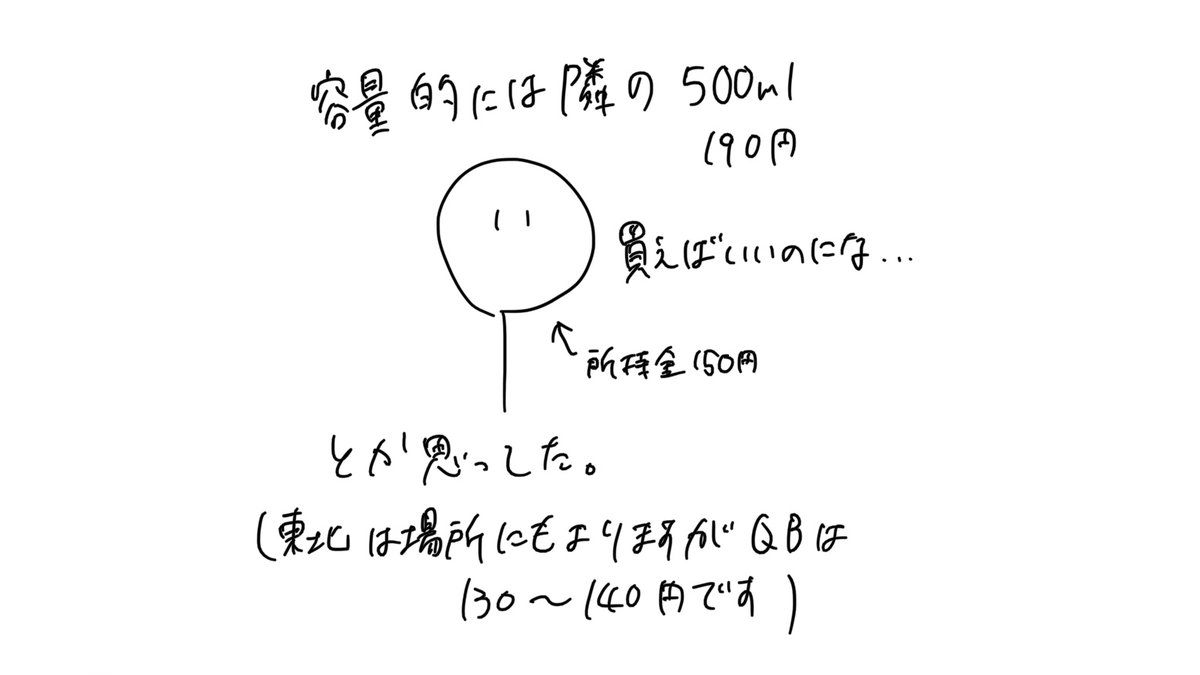 容量的には隣の500ml
190円
買えばいいのにな...
所持金150円
とか思ってた。
(東北は場所にもよりますがQBは
130～140円です)